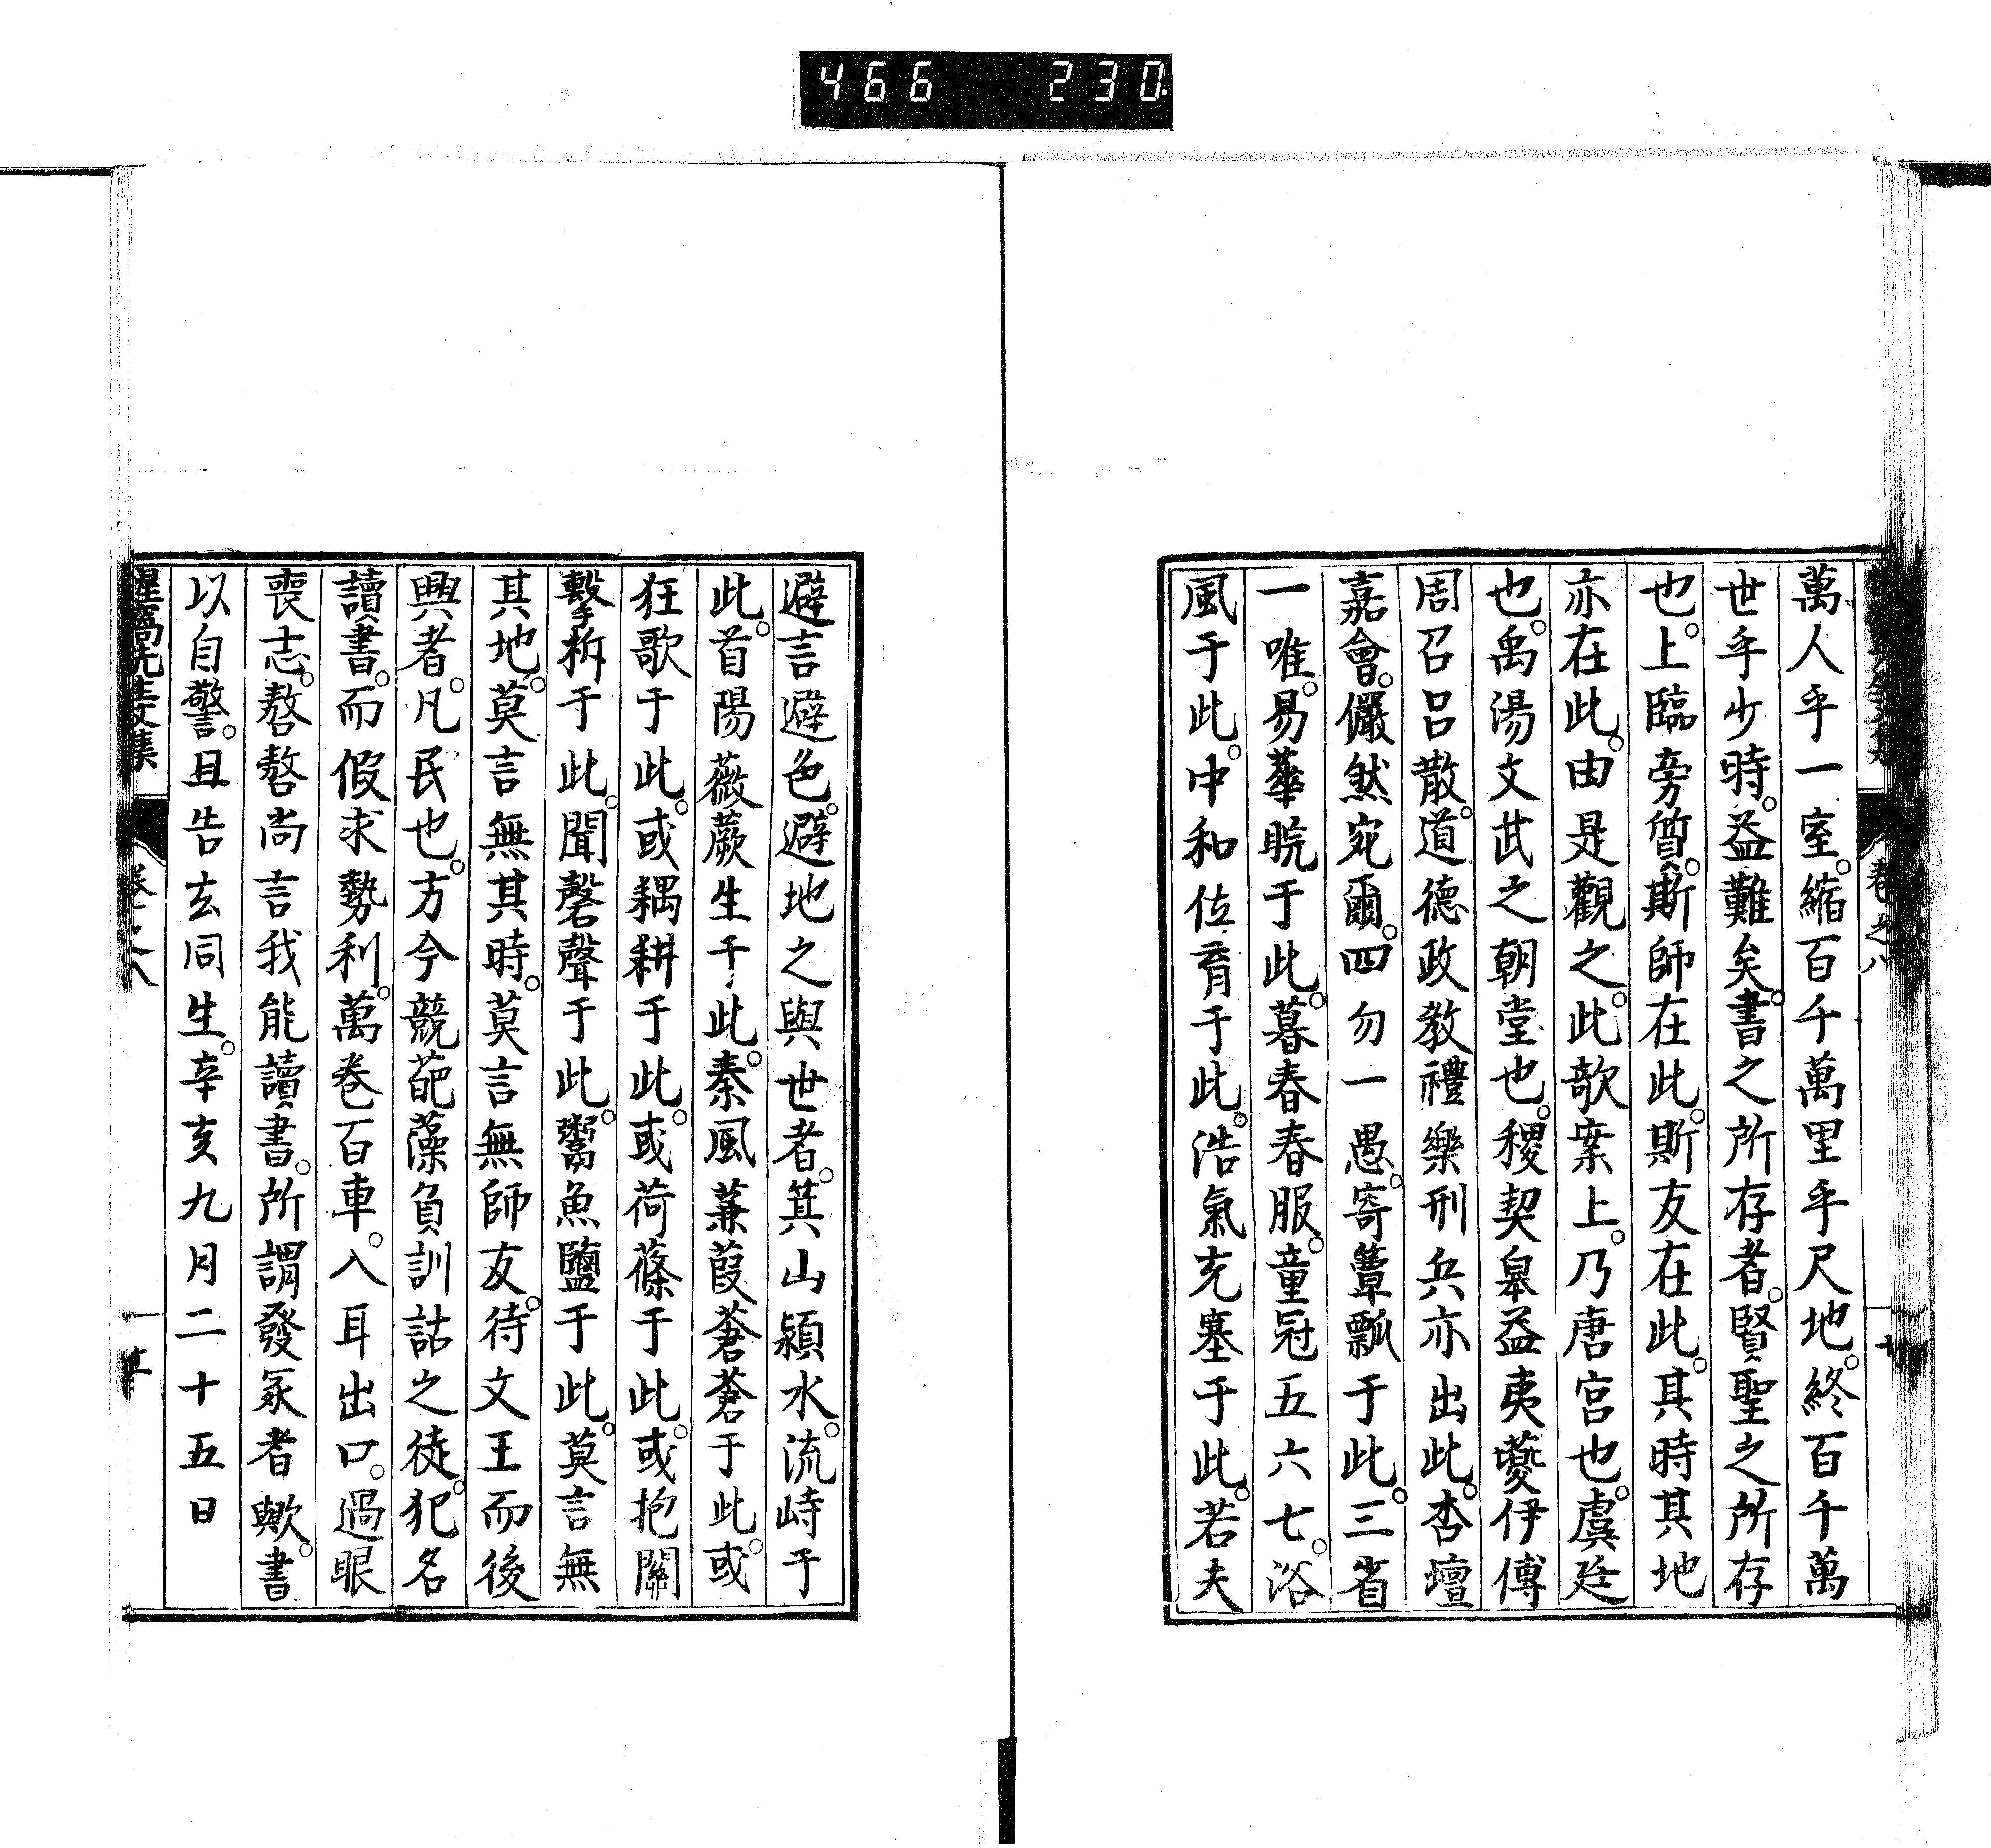 466 230
萬人乎一室。縮百千萬里乎尺地。終百千萬
世乎少時。益難矣。書之所存者。賢聖之所存
也。上臨旁質。斯師在此。斯友在此。其時其地
亦在此。由是觀之。此歌案上。乃唐宮也。虞廷
也。禹湯文武之朝堂也。稷契皋益夷夔伊傅
周召呂散。道德政教禮樂刑兵亦出此。杏壇
嘉會。儼然宛爾。四勿一愚。寄簞瓢于此。三省
一唯。易華睆于此。暮春春服。童冠五六七。浴
風于此。中和位育于此。浩氣充塞于此。若夫
卷之八
避言避色。避地之與世者。箕山潁水。流峙于
此。首陽薇蕨生于此。秦風蒹葭蒼蒼于此。或
狂歌于此。或耦耕于此。或荷蓧于此。或抱關
擊柝于此。聞磬聲于此。鬻魚鹽于此。莫言無
其地。莫言無其時。莫言無師友。待文王而後
興者。凡民也。方今競葩藻負訓詁之徒。犯名
讀書。而假求勢利。萬卷百車。入耳出口。過眼
喪志。嗸嗸尚言我能讀書。所謂發冢者歟。書
以自警。且告玄同生。辛亥九月二十五日
惺窩先生文集 卷之八